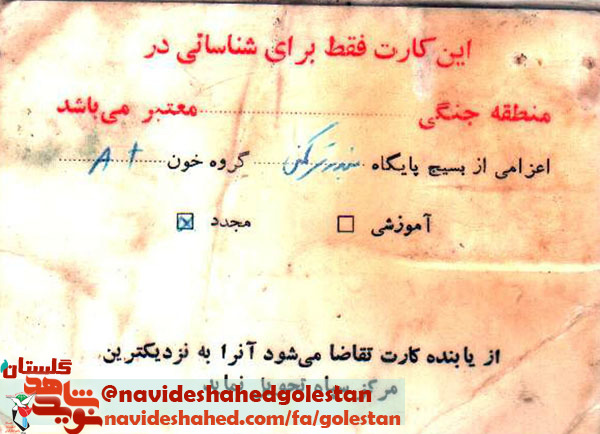 این کارت فقط برای شناسائی در
منطقه جنگی ........ معتبر می‌باشد
اعزامی از بسیج پایگاه بندر ترکمن گروه خون A+
آموزشی ☐ مجدد ☒
از یابنده کارت تقاضا می‌شود آنرا به نزدیکترین
مرکز سپاه تحویل نماید
گلستان
نوید شاهد
@navideshahedgolestan
navideshahed.com/fa/golestan